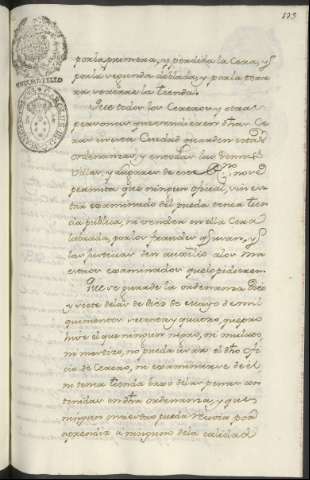 175
por la primera, y perdida la Cera, y
por la segunda doblada, y por la terce
ra cerrarse la tienda.
Que todos los Cereros y otras
personas que vendieren en dicha Ce
ra en esta Ciudad guarden estas
ordenanzas, y en todas las demas
Villas, y lugares de este Reyno, y no se
permita que ningun oficial, sin es
tar examinado de el pueda tener tien
da publica, ni venden en ella Cera
labrada, por los fraudes q usan, y
las Justicias den auxilio a los ma
estros examinadores que lo pidieren.
Que se guarde la ordenanza
y veinte de Mayo de mil
quinientos setenta y quatro, que pro
hive el que ningun negro, ni mulato
ni mestizo, no pueda usar el dho ofi
cio de Cerero, ni examinarse de el
ni tener tienda baxo de las penas con
tenidas en dha ordenanza, y que
ningun maestro pueda recivir por
aprendiz a ninguno de la calidad